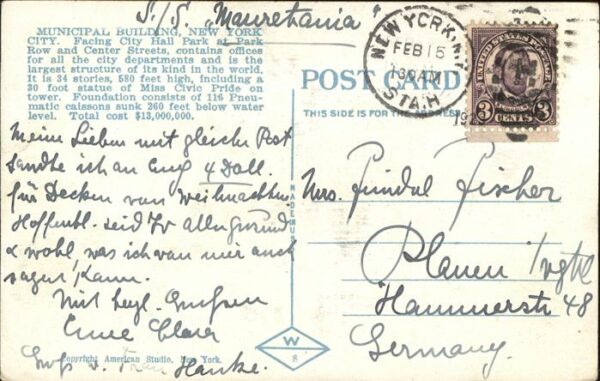 S/S. "Mauretania"
MUNICIPAL BUILDING, NEW YORK
CITY. Facing City Hall Park at Park
Row and Center Streets, contains offices
for all the city departments and is the
largest structure of its kind in the world.
It is 34 stories, 580 feet high, including a
30 foot statue of Miss Civic Pride on
tower. Foundation consists of 116 Pneu-
matic caissons sunk 260 feet below water
level. Total cost $13,000,000.
POST CARD
THIS SIDE IS FOR THE ADDRESS
NEW YORK, N.Y.
FEB 15
130 AM
STA.H
19
UNITED STATES POSTAGE
3 CENTS 3
Meine Lieben mit gleicher Post
sandte ich an Euch 4 Doll.
für Decken von Weihnachten
Hoffentl. seid Ihr alle gesund
& wohl, was ich von mir auch
sagen kann.
Mit herzl. Grüssen
Eure Clara
Gruß v. Hanke.
Mrs. Fischer
Plauen i/vgtl
Hammerstr 48
Germany.
MADE IN U.S.
W
8
Copyright American Studio, New York.